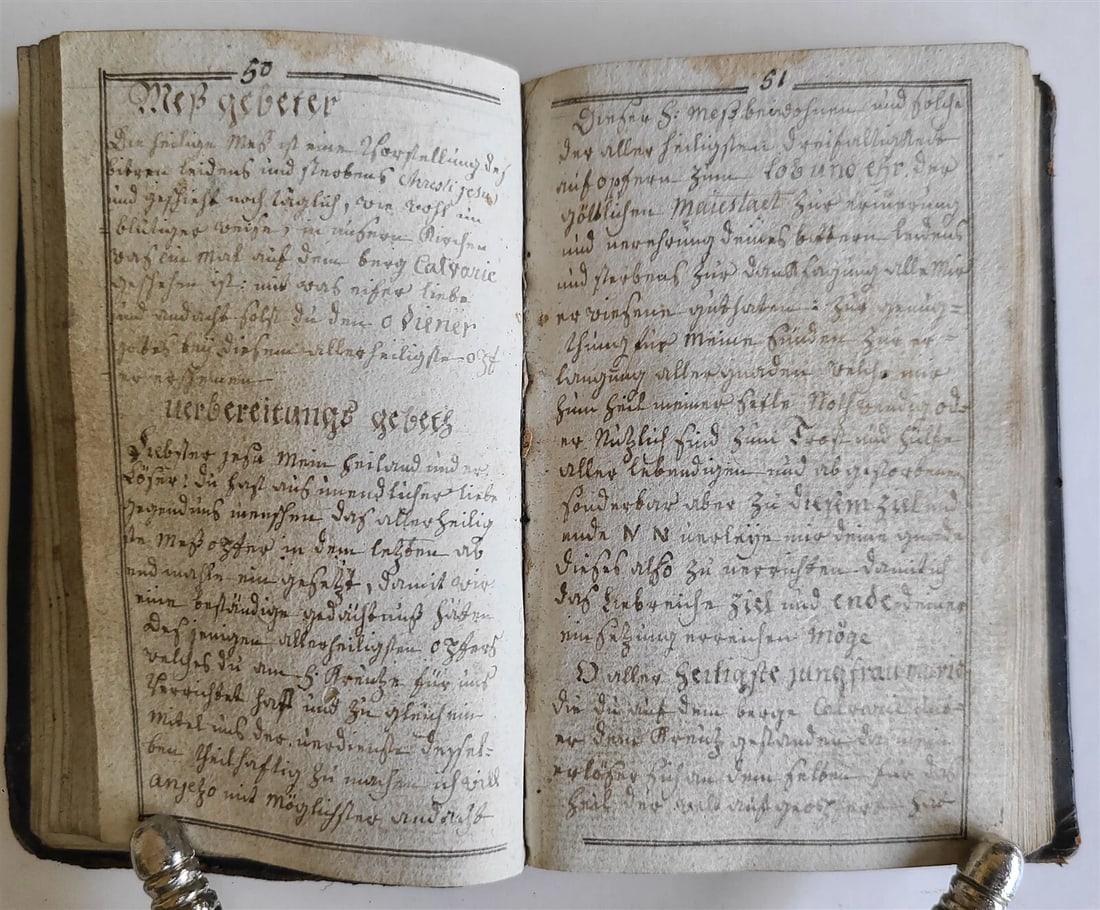 50
Meß gebeter
Die heilige Meß ist eine Vorstellung des
bitren leidens und sterbens Christi jesu
und geschieht noch täglich, wie wohl un
blutiger weise, in unsern Kirchen
was ein mal auf dem berg Calvarie
geschehen ist: mit was eifer liebe
und andacht solst du den o diener
gotes bey diesem allerheiligste opf
er erscheinen
verbereitungs gebeth
Liebster jesu Mein heiland und er
löser! du hast aus unendlicher liebe
gegen uns menschen das allerheilig
ste Meß opffer in dem letzten ab
end mahle ein gesetzt, damit wir
eine beständige gedächtnuß hätten
des jenigen allerheiligsten opfers
welches du am H: Kreutze für uns
verrichtet hast und zu gleich ein
mitel uns der verdienste dessel=
ben theilhaftig zu machen ich will
anjetzo mit möglichster andacht
51
Dieser H: Meß beiwohnen und solche
der aller heiligsten dreifaltigkeit
auf opfern zum lob und ehr der
göttlichen Maiestaet zur erinerung
und verehrung deines bittern leidens
und sterbens zur danksagung alle Mir
er wiesene guthaten: zur genug=
thuung für Meine sünden zur er=
langung aller gnaden welche mir
zum heil meiner seele Nothwendig od
er Nutzlich sind zum Trost und hülfe
aller lebendigen und abgestorbenen
sonderbar aber zu diesem ziel und
ende N N verleye mir deine gnade
dieses also zu verrichten damit ich
das liebreiche ziel und ende deiner
ein setzung erreichen möge
O aller heiligste jungfrau marie
die du auf dem berge Calvarie
er dem Kreutz gestanden da mein
erlöser sich an dem selben für das
heil der welt aufgeopfert